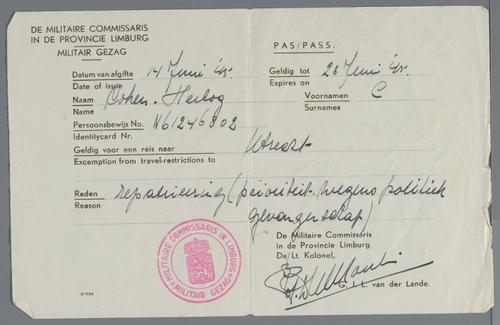 DE MILITAIRE COMMISSARIS
IN DE PROVINCIE LIMBURG
MILITAIR GEZAG
PAS/PASS.
Datum van afgifte 14 Juni '45. Geldig tot 28 Juni '45.
Date of issue Expires on
Naam Cohen-Hertog Voornamen C
Name Surnames
Persoonsbewijs No. N61246802
Identitycard Nr.
Geldig voor een reis naar Utrecht
Excemption from travel-restrictions to
Reden repatrieering (prioriteit wegens politiek
Reason gevangenschap)
De Militaire Commissaris
in de Provincie Limburg.
De/Lt. Kolonel,
G. J. L. van der Lande.
MILITAIRE COMMISSARIS IN LIMBURG
MILITAIR GEZAG
K 1794